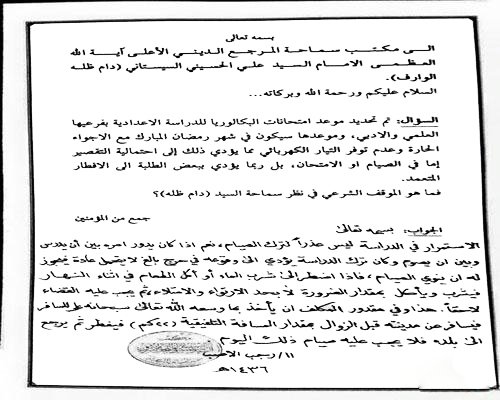 بسمه تعالى
الى مكتب سماحة المرجع الديني الأعلى آية الله
العظمى الامام السيد علي الحسيني السيستاني (دام ظله
الوارف).
السلام عليكم ورحمة الله وبركاته...
السؤال: تم تحديد موعد امتحانات البكالوريا للدراسة الاعدادية بفرعيها
العلمي والادبي، وموعدها سيكون في شهر رمضان المبارك مع الاجواء
الحارة وعدم توفر التيار الكهربائي مما يؤدي ذلك إلى احتمالية التقصير
إما في الصيام او الامتحان، بل ربما يؤدي ببعض الطلبة الى الافطار
المتعمد.
فما هو الموقف الشرعي في نظر سماحة السيد (دام ظله)؟
جمع من المؤمنين
الجواب: بسمه تعالى
الاستمرار في الدراسة ليس عذراً لترك الصيام، نعم اذا كان يدور امره بين أن يدرس
وبين ان يصوم وكان ترك الدراسة يؤدي الى وقوعه في حرج بالغ لا يتحمل عادة يجوز
له ان ينوي الصيام، فاذا اضطر الى شرب الماء أو أكل الطعام في اثناء النهار
فيشرب ويأكل بمقدار الضرورة لا بحد الارتواء والامتلاء، ثم يجب عليه القضاء
لاحقاً. هذا وفي مقدور المكلف ان يأخذ بما وسعه الله تعالى سبحانه على المسافر
فيسافر من مدينته قبل الزوال بمقدار المسافة التلفيقية (٢٢كم) فيفطر ثم يرجع
الى بلده فلا يجب عليه صيام ذلك اليوم
١١/رجب الاصب
١٤٣٦هـ